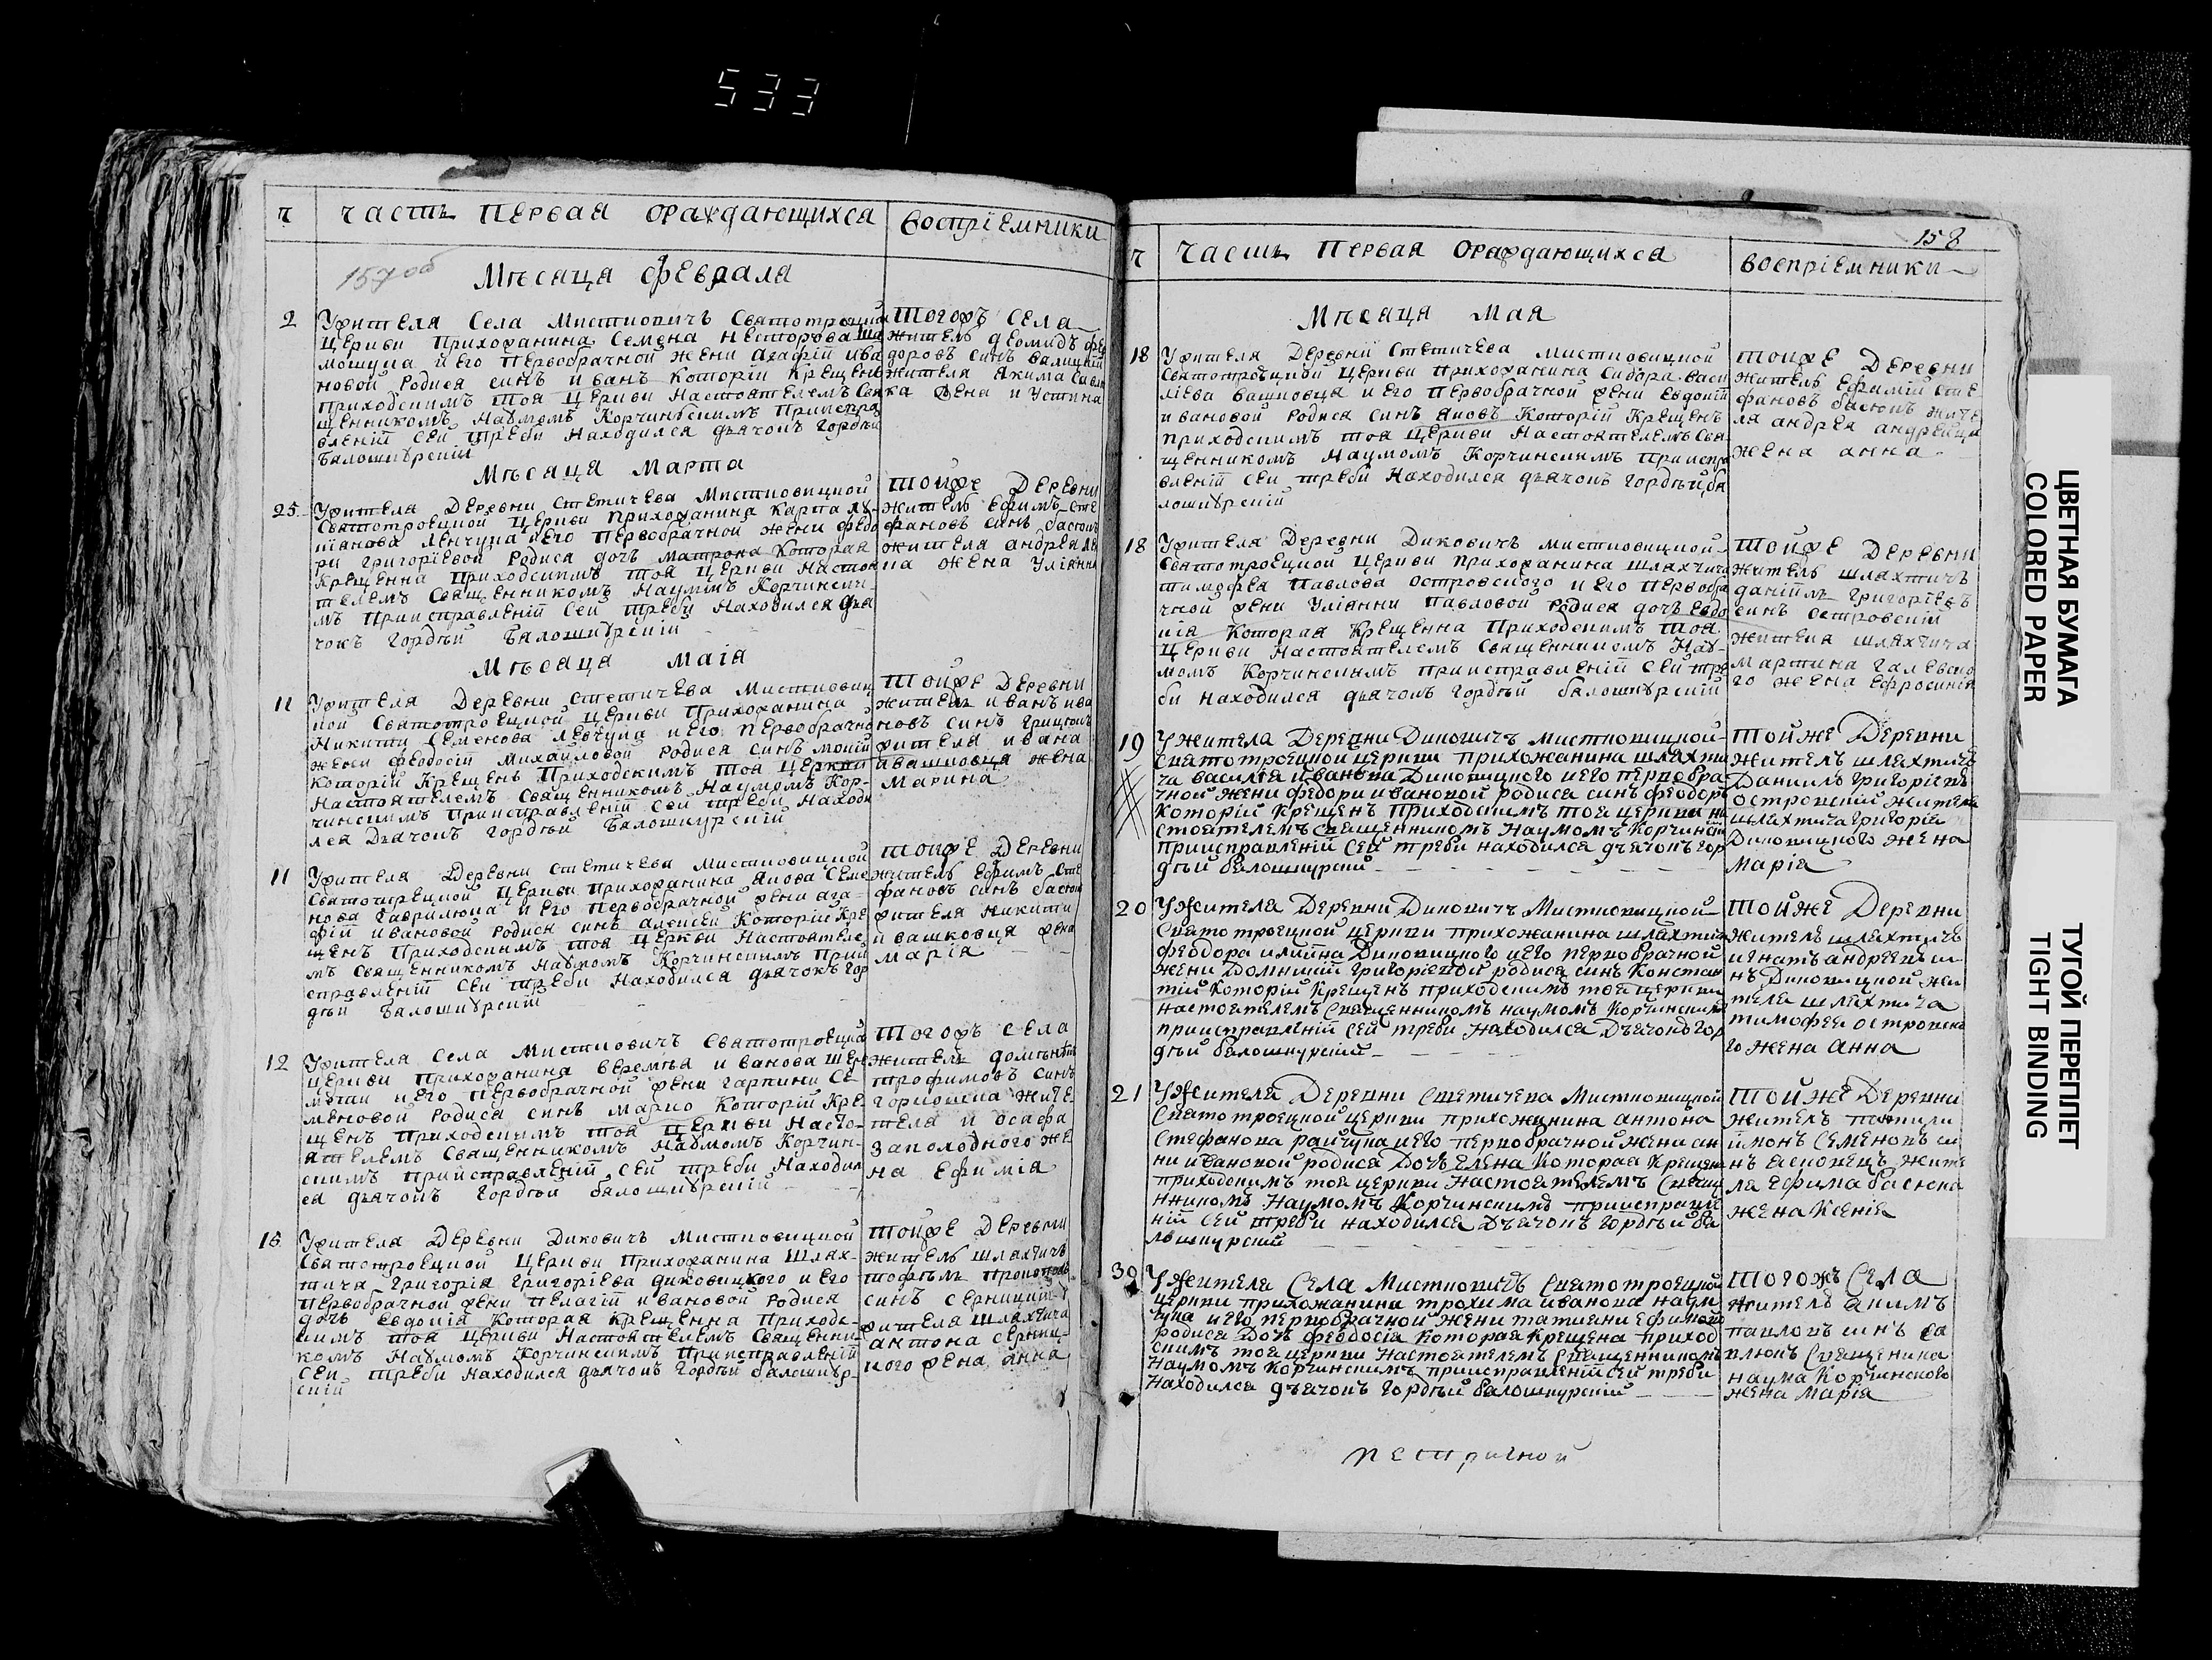 533
ч
часть первая ораждающихся
воспріемники
157об
Мѣсяца февраля
2
Ужителя Села Мистковичъ Святотроицкія
Церкви Прихожанина Семена Несторова Ша
мошука и его Первобрачной жени Агафіи ива
новой Родися синъ иванъ Которій Крещенъ
Приходскимъ тоя Церкви Настоятелемъ Свя
щенникомъ Наумомъ Корчинскимъ Приіспра
вленій Сей треби Находился дьячокъ Гордѣй
Балошкурскій
тогожъ Села
житель деомидъ фе
доровъ синъ
жителя Якима
жена Устина
Мѣсяца Марта
25
Ужителя Деревни Стетичева Мистковицкой
Святотроецкой Церкви Прихожанина Карпа лу
кіанова Левчука иего Первобрачной жени федо
ри Григоріевой Родися дочъ матрона Которая
Крещенна Приходскимъ тоя Церкви Настоя
телемъ Священникомъ Наумомъ Корчински
мъ Приісправленій Сей треби Находился дья
чокъ Гордѣй Балошкурскій
тойже Деревни
житель Ефимъ Сте
фановъ синъ басюкъ
жителя андрея
жена Уліянна
Мѣсяца Маіа
11
Ужителя Деревни Стетичева Мистковиц
кой Святотроецкой Церкви Прихожанина
Никиты Семенова Левчука иего Первобрачной
жени Феодосіи Михайловой Родися синъ мокій
Которій Крещенъ Приходскимъ тоя Церкви
Настоятелемъ Священникомъ Наумомъ Кор-
чинскимъ Приісправленій Сей треби Находи
лся Дьячокъ Гордѣй Балошкурскій
тойже Деревни
житель иванъ ива
новъ синъ Грицюкъ
жителя ивана
ивашковця жена
Марина
11
Ужителя Деревни Стетичева Мистковицкой
Святотроецкой Церкви Прихожанина Якова Семе
нова Гаврилюка и Его Первобрачной жени ага-
фіи ивановой Родися синъ алексей Которій Кре
щенъ Приходскимъ тоя Церкви Настоятеле
мъ Священникомъ Наумомъ Корчинскимъ Приі
справленій Сей треби Находился дьячокъ Гор
дѣй Балошкурскій
тойже Деревни
житель Ефимъ Сте
фановъ синъ басюкъ
жителя Никити
ивашковця жена
марія
12
Ужителя Села Мистковичъ Святотроецкія
Церкви Прихожанина веремѣя иванова Шере
метки иего Первобрачной жени гарпини Се-
меновой Родися синъ марко Которій Кре-
щенъ Приходскимъ тоя Церкви Насто-
ятелемъ Священникомъ Наумомъ Корчин-
скимъ Приісправленій Сей треби Находил
ся дьячокъ Гордѣй балошкурскій
тогожъ села
житель
трофимовъ синъ
жите
ля иосифа
заполодного же
на Ефимія
Ужителя Деревни Диковичъ Мистковицкой
Святотроецкой Церкви Прихожанина Шлях-
тича Григорія Григоріева диковицкого и его
Первобрачной жени пелагіи ивановой Родися
дочъ Евдокія Которая Крещенна Приход-
скимъ тоя Церкви Настоятелемъ Священни-
комъ Наумомъ Корчинскимъ Приісправленій
Сей треби Находился дьячокъ Гордѣй балошкур-
скій
тойже Деревни
житель шляхтичъ
синъ серницкій
жителя шляхтича
антона серниц-
кого жена анна
158
ч
часть Первая Ораждающихся
воспріемники
Мѣсяца Мая
18
Ужителя Деревни Стетичева Мистковицкой
Святотроецкой Церкви Прихожанина Сидора васи
ліева вашковца и Его Первобрачной жени Евдокій
ивановой Родися синъ яковъ Которій Крещенъ
Приходскимъ тоя Церкви Настоятелемъ Свя-
щенникомъ Наумомъ Корчинскимъ Приіспра
вленій Сей треби Находился дьячокъ Гордѣй ба
лошкурскій
тойже Деревни
житель Ефимій Сте
фановъ басюкъ жите
ля андрея андрейца
жена анна
18
Ужителя Деревни Диковичъ мистковицкой
Святотроецкой Церкви Прихожанина шляхтича
тимофея Павлова островского и Его Первобра
чной жени Уліянни Павловой Родися дочъ Евдо
кія Которая Крещенна Приходскимъ Тоя
Церкви Настоятелемъ Священникомъ Нау-
момъ Корчинскимъ приісправленій Сей тре
би находился дьячокъ Гордѣй балошкурскій
тойже Деревни
житель шляхтичъ
даніилъ Григоріевъ
синъ островскій
жителя шляхтича
Мартина галевско
го жена Ефросинія
19
Ужителя Деревни Диковичъ мистковицкой
Святотроецкой церкви прихожанина шляхти
ча василія иванова Диковицкого иего первобра
чной жени федори ивановой родися синъ феодоръ
Которій Крещенъ приходскимъ тоя церкви на
стоятелемъ священникомъ Наумомъ Корчинским
приісправленій Сей треби находился дьячокъ гор
дѣй балошкурскій
тойже Деревни
житель шляхтичъ
Даніилъ григоріевъ
островскій жителя
шляхтича григорія
Диковицкого жена
Марія
20
Ужителя Деревни Диковичъ Мистковицкой
Святотроецкой церкви прихожанина шляхтича
феодора Диковицкого иего первобрачной
жени Домникій григоріевой родися синъ Констан
тій Которій Крещенъ приходскимъ тоя церкви
настоятелемъ Священникомъ наумомъ Корчинским
приісправленій сей треби находился Дьячокъ гор
дѣй балошкурскій
тойже Деревни
житель шляхтичъ
игнатъ андреевъ си
нъ Диковицкой жи
теля шляхтича
тимофея островско
го жена анна
21
Ужителя Деревни Стетичева Мистковицкой
Святотроецкой церкви прихожанина антона
Стефанова райчука иего первобрачной жени ан
ни ивановой родися Дочъ Елена Которая Крещена
приходскимъ тоя церкви настоятелемъ Свяще
нникомъ Наумомъ Корчинскимъ приісправле
ній сей треби находился Дьячокъ Гордѣй ба
лошкурскій
тойже Деревни
житель
Семеновъ си
нъ жите
ля Ефима басюка
жена Ксенія
30
Ужителя Села Мистковичъ Святотроецкой
церкви прихожанина трохима иванова наум
чука иего первобрачной жени татиани Ефимовой
родися Дочъ феодосія Которая крещена приход
скимъ тоя церкви Настоятелемъ Священникомъ
Наумомъ Корчинскимъ приісправленій сей треби
Находился дьячокъ Гордѣй балошкурскій
тогожъ Села
житель акимъ
павловъ синъ са
влюкъ Священика
наума Корчинского
жена Марія
ЦВЕТНАЯ БУМАГА
COLORED PAPER
ТУГОЙ ПЕРЕПЛЕТ
TIGHT BINDING